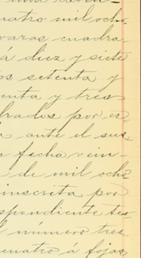 cuatro mil och
varas cuadra
á diez y siete
os setenta y
enta y tres
drados por es
a ante el sus
a fecha vein
de mil och
inscrita por
spondiente tes
l numero tres
cuatro á fojas